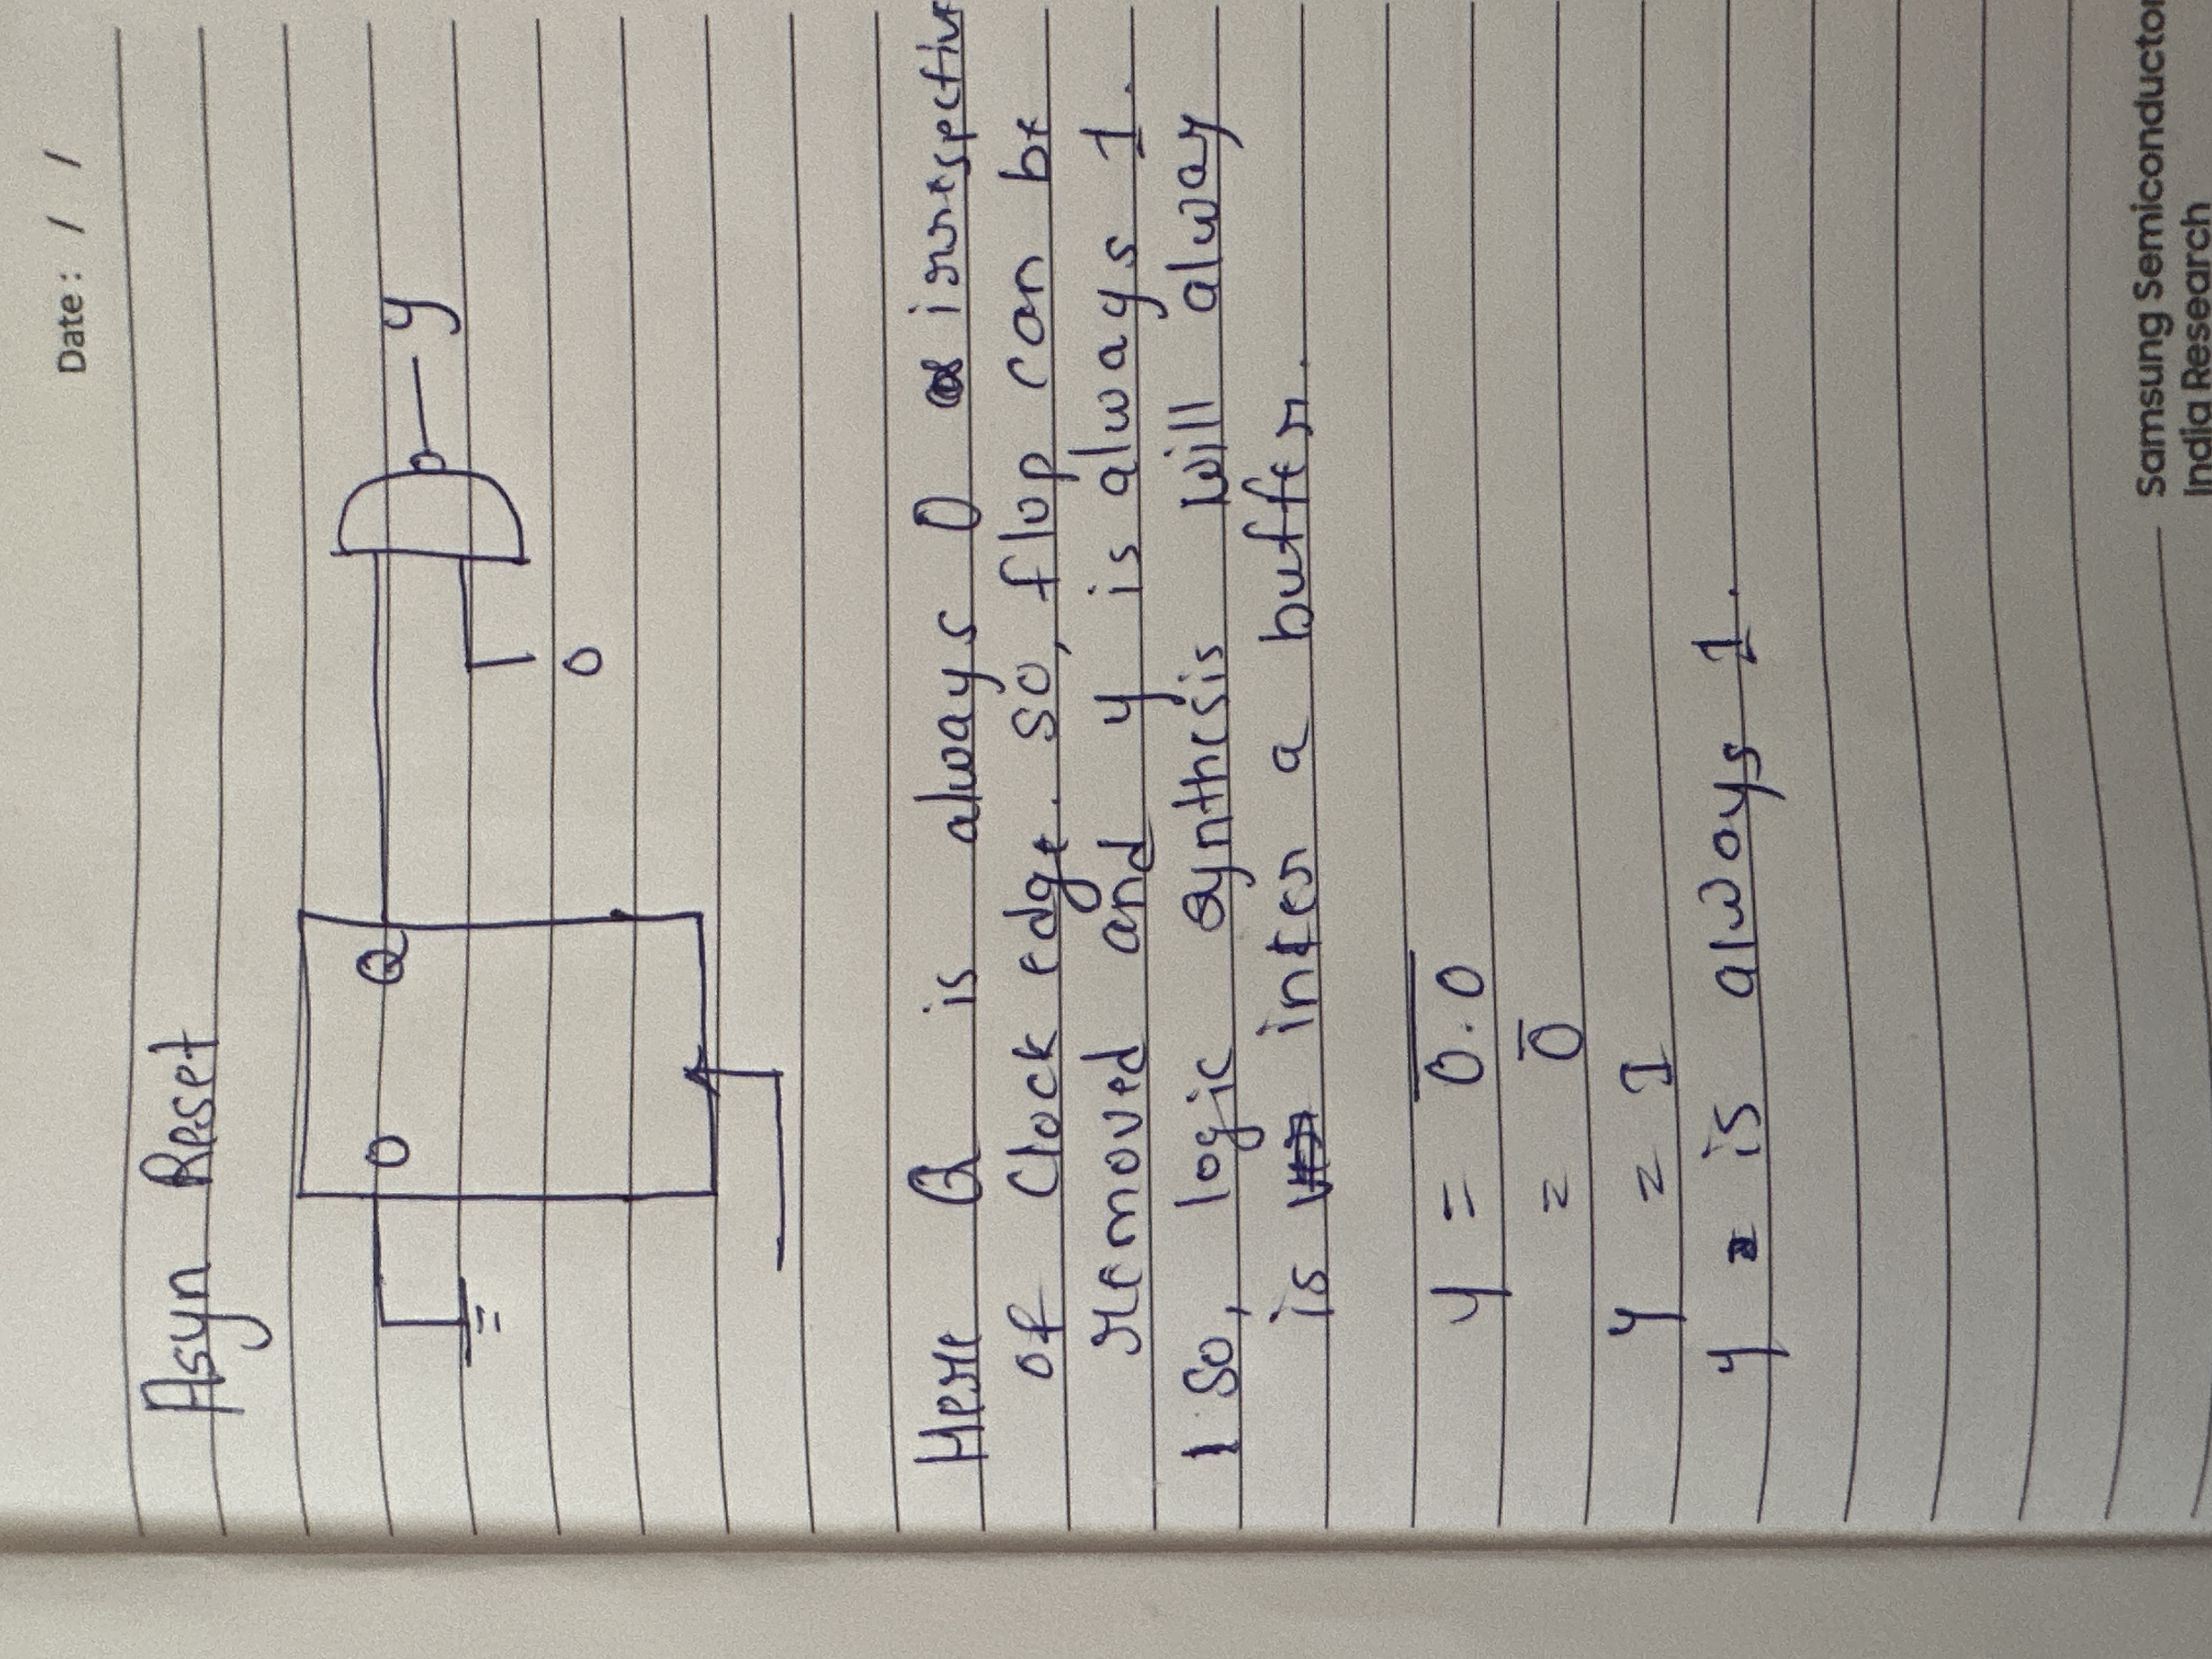 Date : / /
Asyn Reset
D Q y
0
Here Q is always 0 irrespective
of Clock edge. so, flop can be
removed and y is always 1.
So, logic synthesis will alway
is infer a buffer.
y = 0.0
= 0
y = 1
y is always 1.
Samsung Semiconductor
India Research